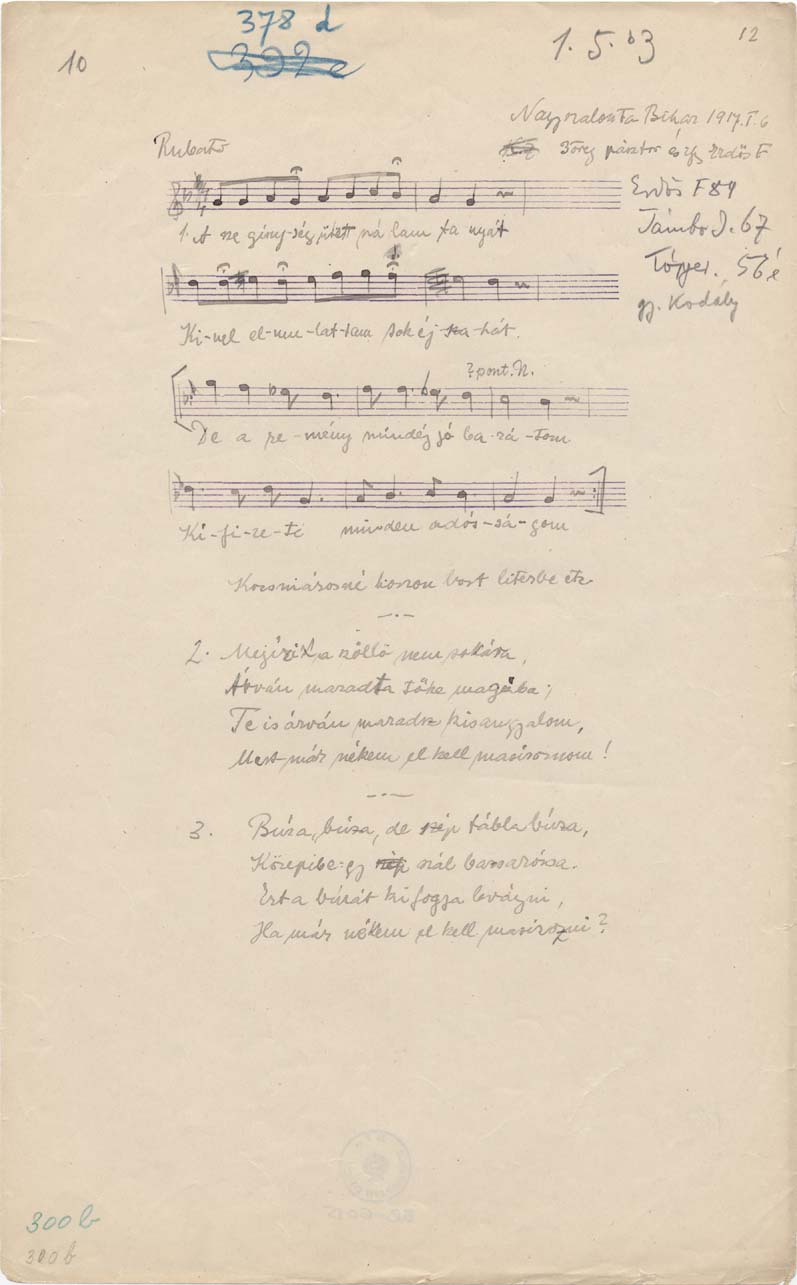 10
378 d
302 e
1.5.b3
12
Nagyszalonta Bihar 1917. I. 6
Rubato
3 öreg pásztor és egy Erdős F
Erdős F 89
Jámbor J. 67
56 é
gy. Kodály
1. A sze gíny-ség ütött ná lam ta nyát
Ki-vel el-mu-lat-tam sok éj-sza-kát.
? pont. N.
De a re-mény mindég jó ba-rá-tom
Ki-fi-ze-ti minden adós-sá-gom
Kocsmárosné hozzon bort literbe etc
2. Megírik a szőllő nem sokára,
Árván maradt a tőke magába;
Te is árván maradsz kisangyalom,
Mert már nékem el kell masiroznom!
3. Búza, búza, de szép tábla búza,
Közepibe egy szép szál bazsarózsa.
Ezt a búzát ki fogja levágni,
Ha már nékem el kell masirozni?
300 b
300 b